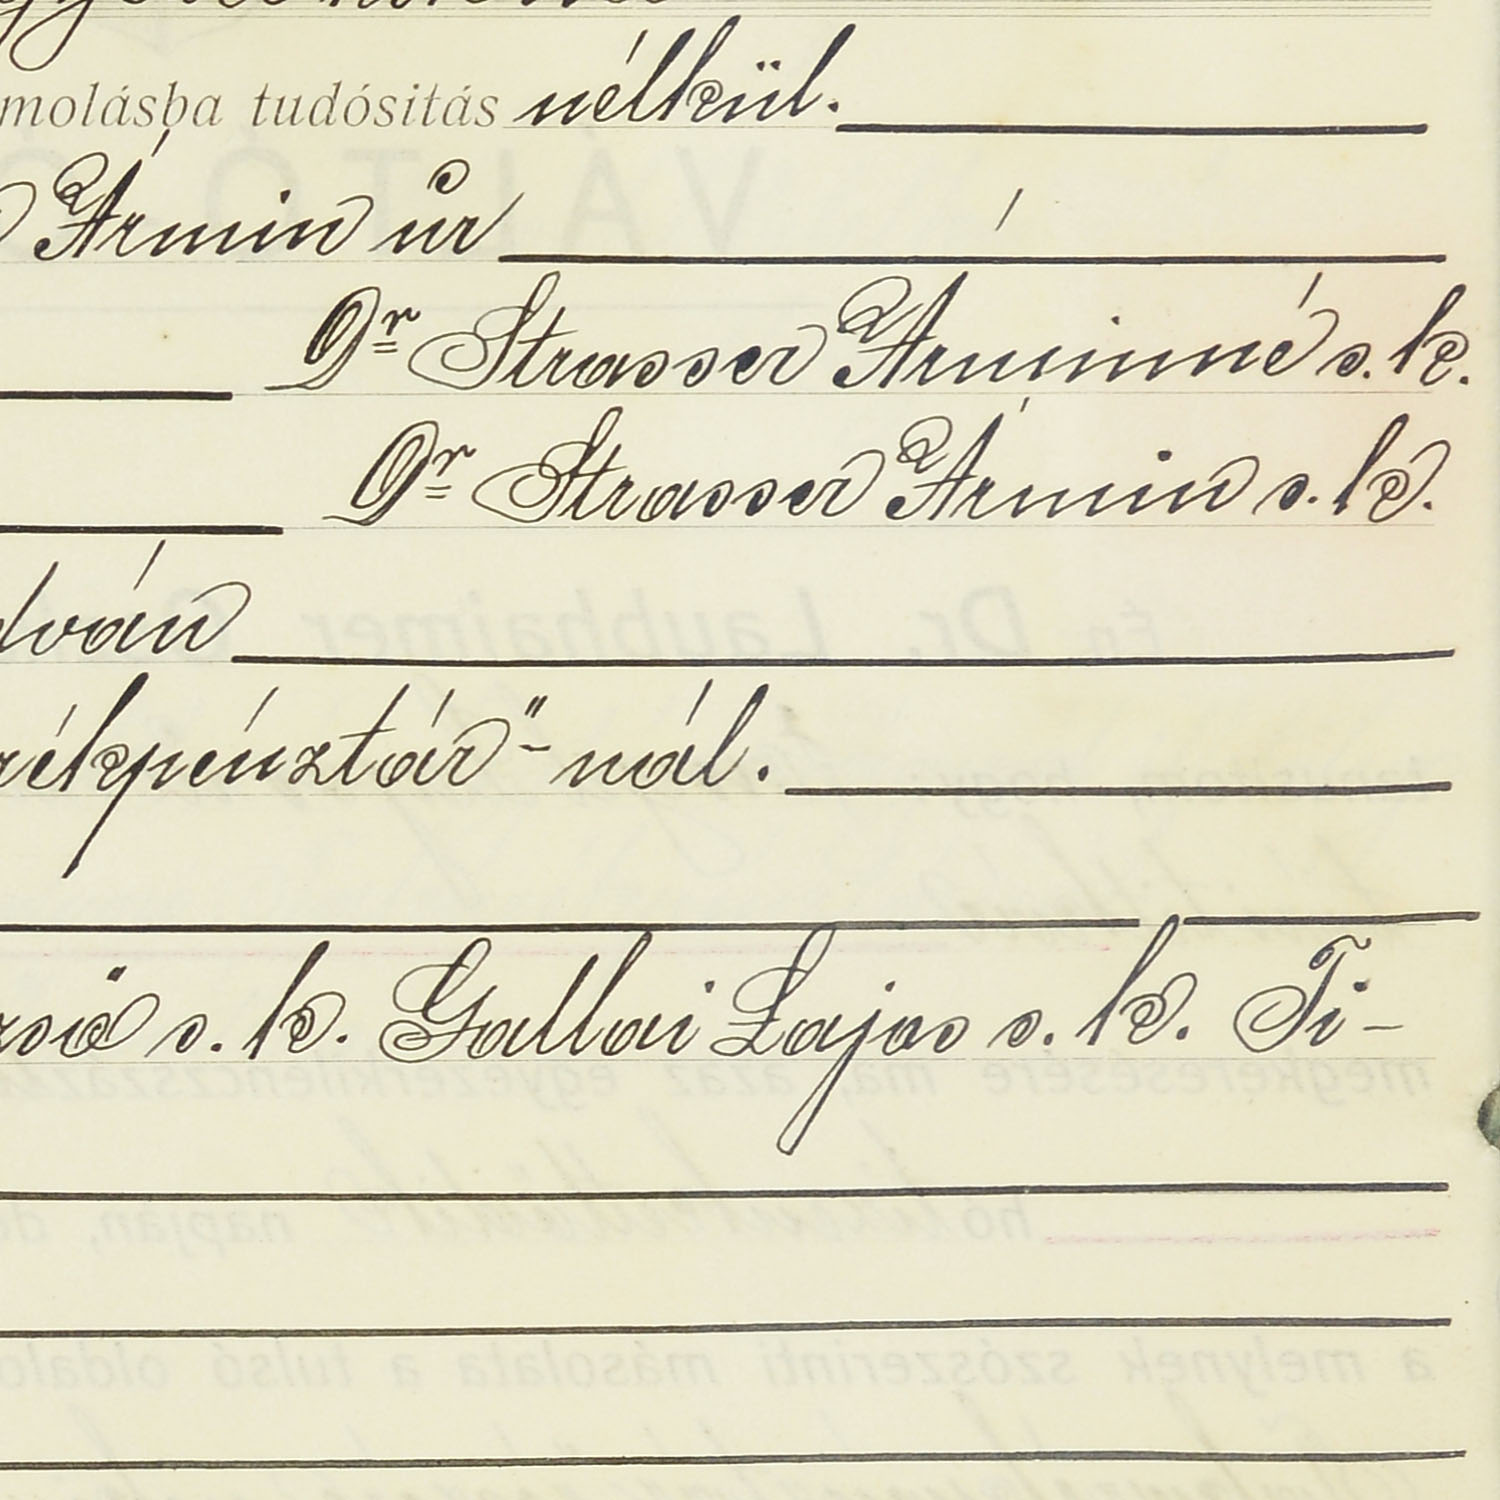 molásba tudósitás nélkül.
Ármin úr
Dr Strasser Árminné s. k.
Dr Strasser Ármin s. k.
dván
rékpénztár"- nál.
zső s. k. Gallai Lajos s. k. Ti-